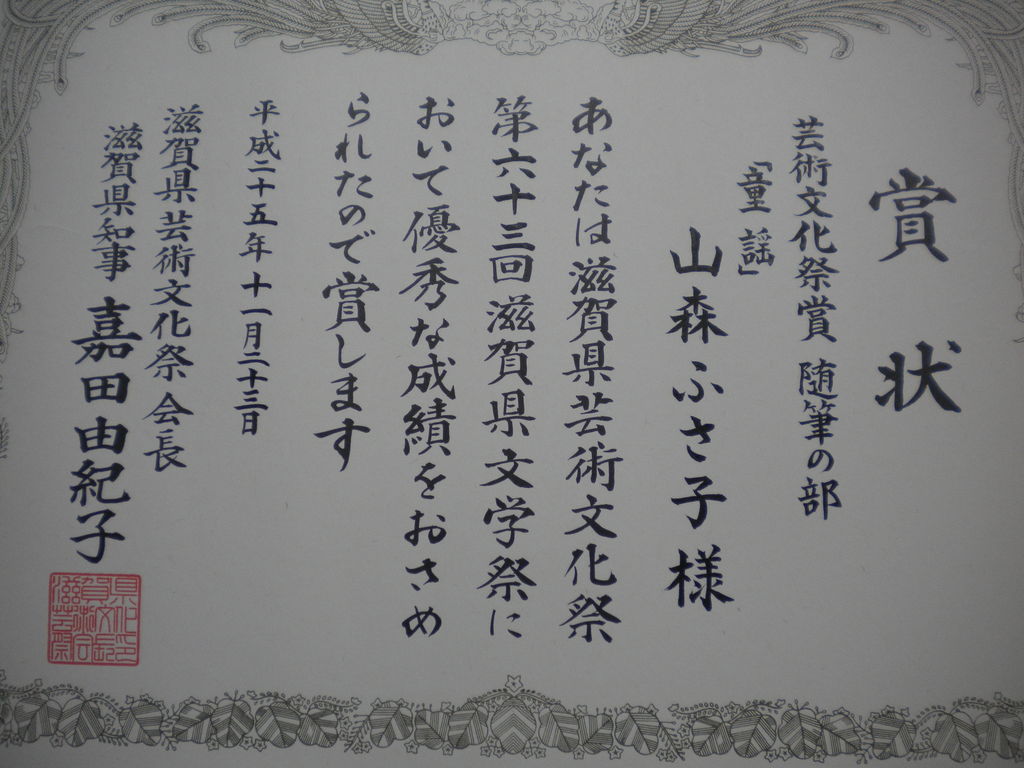 賞状
芸術文化祭賞 随筆の部
「童謡」
山森ふさ子様
あなたは滋賀県芸術文化祭
第六十三回滋賀県文学祭に
おいて優秀な成績をおさめ
られたので賞します
平成二十五年十一月二十三日
滋賀県芸術文化祭会長
滋賀県知事 嘉田由紀子